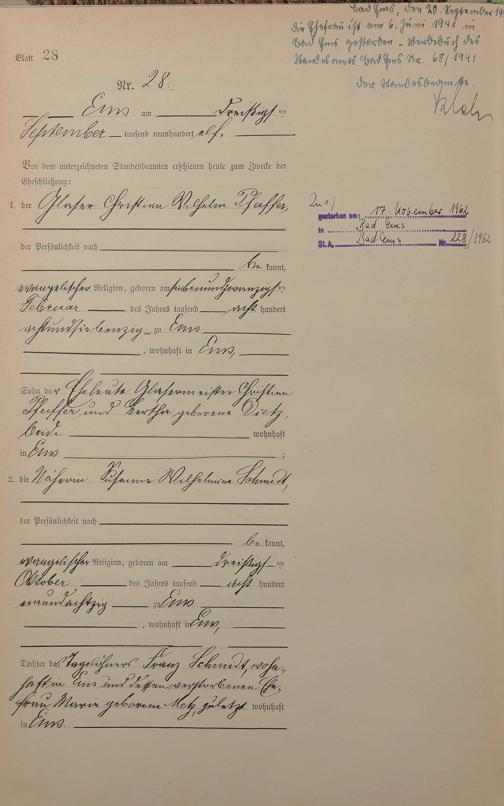 Bad Ems, den 20. September 19
die Ehefrau ist am 6. Juni 1941 in
Bad Ems gestorben - Sterbebuch des
Standesamts Bad Ems Nr. 68/1941
Der Standesbeamte.
Blatt 28
Nr. 28.
Ems am dreißigsten
September tausend neunhundert elf.
Vor dem unterzeichneten Standesbeamten erschienen heute zum Zwecke der
Eheschließung:
1. der Glaser Christian Wilhelm Pfeffer,
der Persönlichkeit nach
be kannt,
evangelischer Religion, geboren am siebenundzwanzigsten
Februar des Jahres tausend acht hundert
achtundsiebenzig zu Ems
, wohnhaft in Ems,
Sohn der Eheleute Glasermeister Christian
Pfeffer und Bertha geborene Dietz,
beide wohnhaft
in Ems ;
2. die Näherin Susanne Wilhelmine Schmidt,
der Persönlichkeit nach
be kannt,
evangelischer Religion, geboren am dreißigsten
Oktober des Jahres tausend acht hundert
einundachtzig zu Ems
, wohnhaft in Ems,
Tochter des Tagelöhners Franz Schmidt, wohn-
haft in Ems und dessen verstorbenen Ehe-
frau Marie geborene Metz, zuletzt wohnhaft
in Ems.
Zu 1)
gestorben am: 17. November 1962
in Bad Ems
St.A. Bad Ems Nr. 228/1962